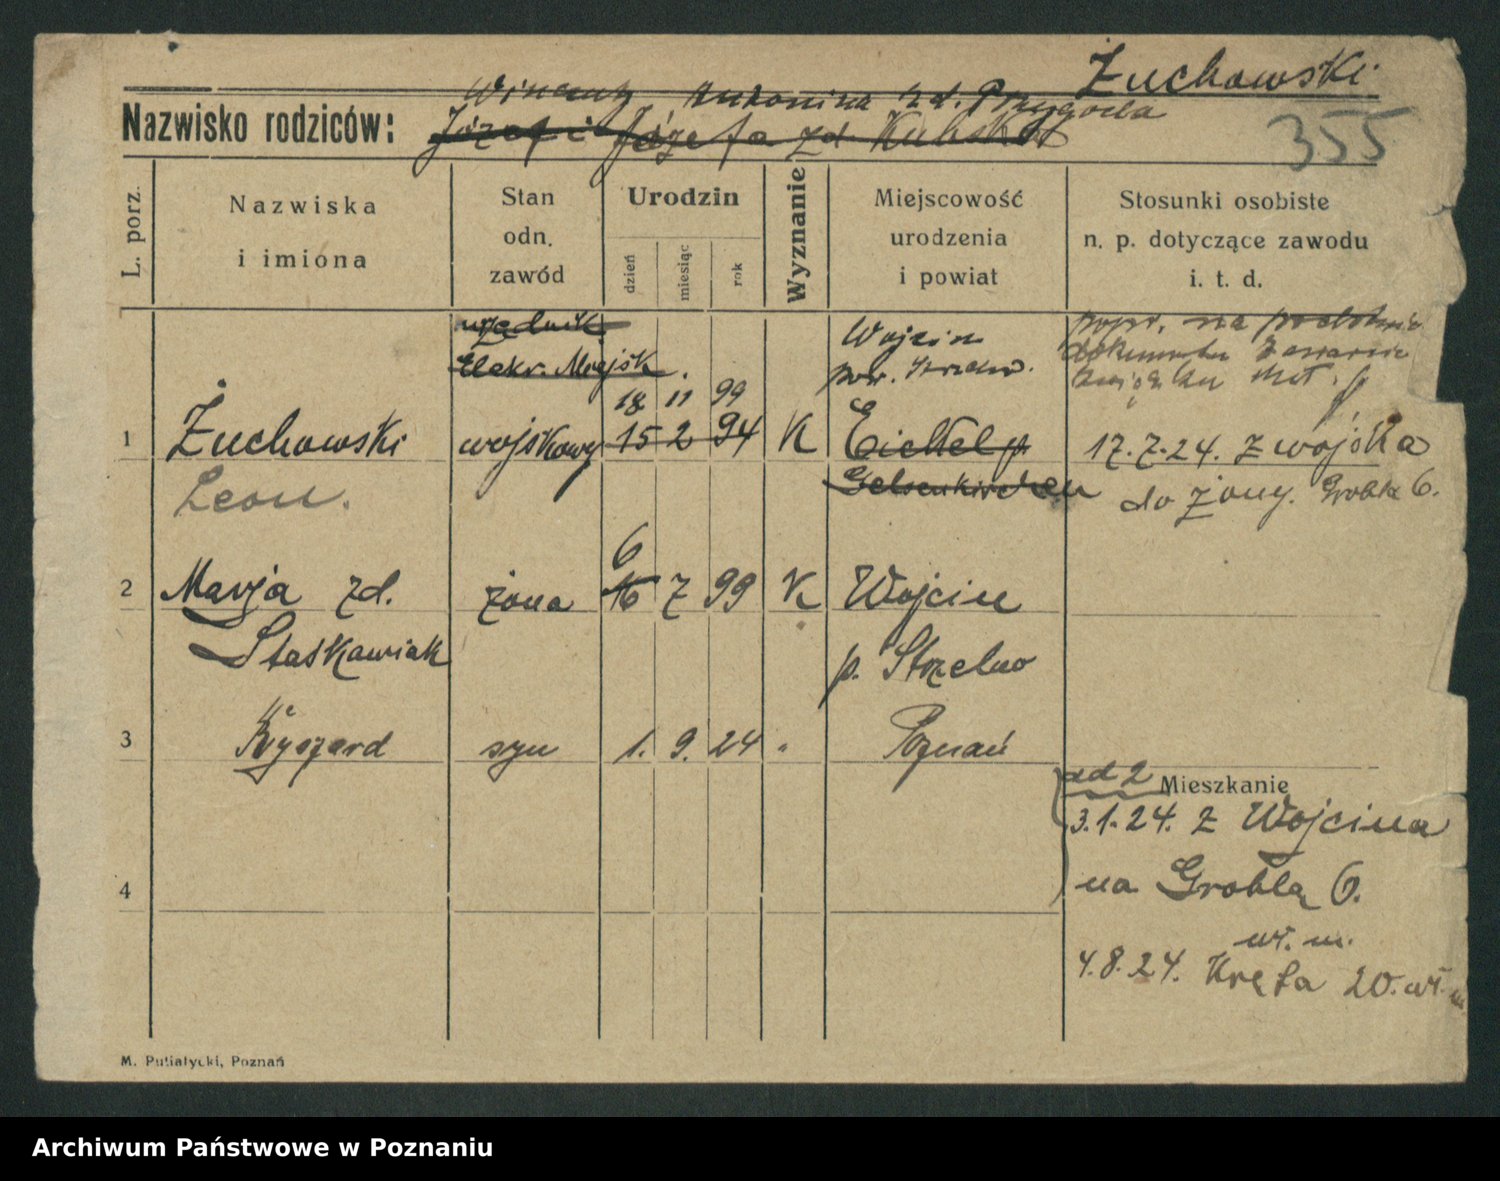 Żuchowski
355
Wincenty Antonina zd. Przygoda
Nazwisko rodziców: Józef i Józefa zd. Kubska
L. porz.
Nazwiska
i imiona
Stan
odn.
zawód
Urodzin
dzień
miesiąc
rok
Wyznanie
Miejscowość
urodzenia
i powiat
Stosunki osobiste
n. p. dotyczące zawodu
i. t. d.
1
Żuchowski
Leon.
urzędnik
Elekr. Miejsk.
wojskowy
18 11 99
15 2 94
K
Wojcin
pow. Strzelno.
Eickel p
Gelsenkirchen
popr. na podstawie
dokumentu zawarcia
związku
17.7.24. z wojska
do żony. Grobla 6.
2
Marja zd.
Staśkawiak
żona
6
16 7 99
K
Wojcin
p. Strzelno
3
Ryszard
syn
1. 9. 24
"
Poznań
ad 2
Mieszkanie
3.1.24. z Wojcina
na Groblą 6.
wł. m.
4
4.8.24. Kręta 20. wł. m
M. Putiatycki, Poznań
Archiwum Państwowe w Poznaniu